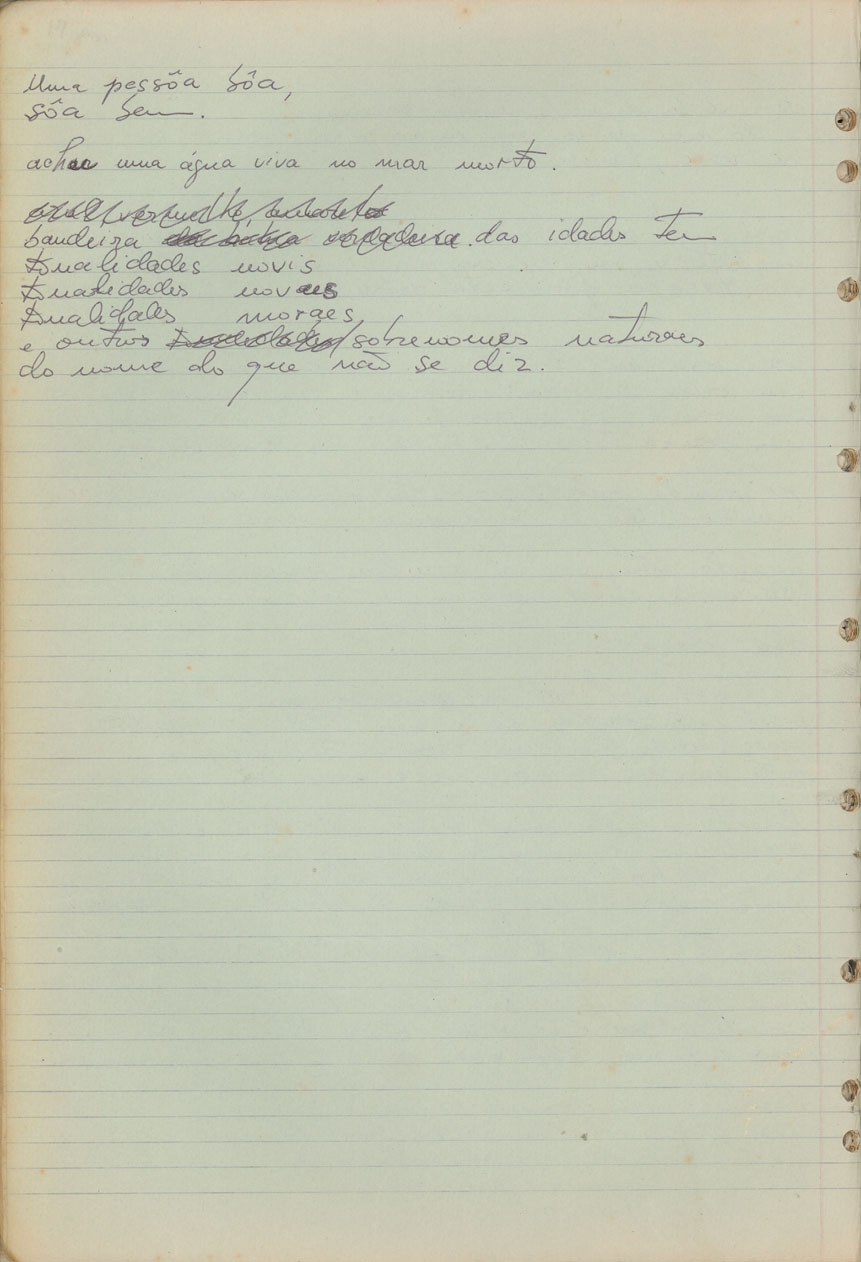 Uma pessôa bôa,
sôa bem.
achar uma água viva no mar morto.
bandeira das idades tem
Qualidades novis
Qualidades novaes
Qualidades moraes
e outros sobrenomes naturaes
do nome do que não se diz.